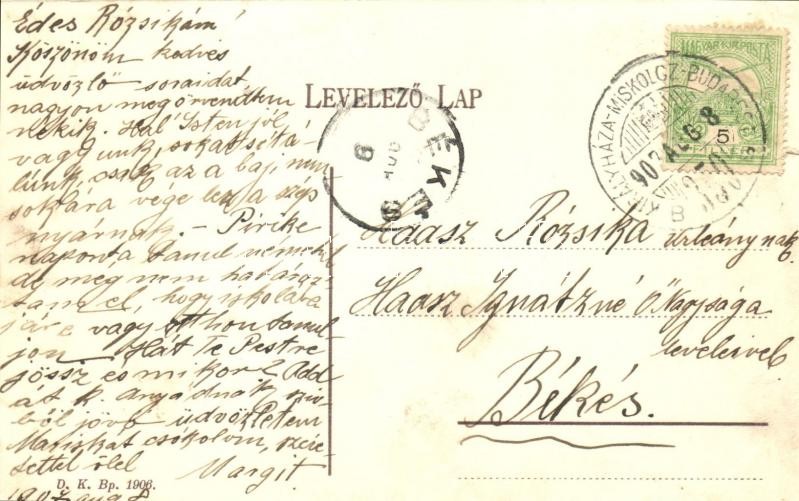 Édes Rózsikám!
Köszönöm kedves
üdvözlő soraidat
nagyon megörvendtem
nekik. Hál' Isten jól
vagyunk, sokat sétá-
lunk, csak az a baj, mily
sokára vége lesz a szép
nyárnak. - Piroske
naponta tanul németül
de még nem határoz-
tam el, hogy iskolába
jár e vagy otthon tanul-
jon. Hát Te Pestre
jössz és mikor? Add
át k. anyádnak szív-
ből jövő üdvözletem
Mariskát csókolom, szere-
tettel ölel
Margit
D. K. Bp. 1906.
1907 aug 8
LEVELEZŐ LAP
MAGYAR KIR. POSTA
5
KIRÁLYHÁZA-MISKOLCZ-BUDAPEST
907 AUG 8
B
BÉKÉS
AUG
9
Haasz Rózsika úrleánynak
Haasz Ignátzné Ő Nagysága
leveleivel
Békés.